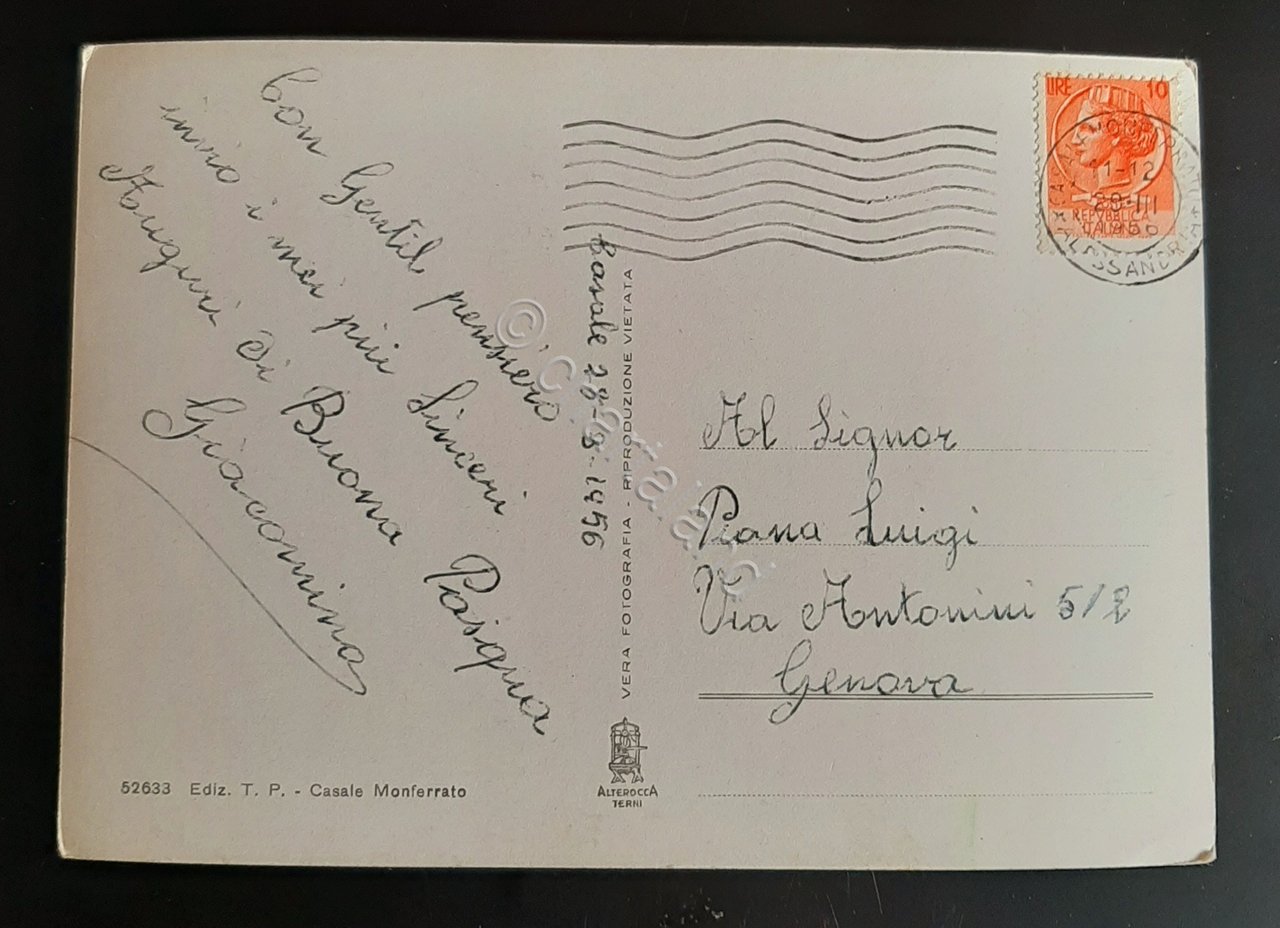 Con Gentil pensiero
invio i miei più Sinceri
Auguri di Buona Pasqua
Giacomina
52633 Ediz. T. P. - Casale Monferrato
Casale 28-3-1956
VERA FOTOGRAFIA - RIPRODUZIONE VIETATA
ALTEROCCA
TERNI
LIRE 10
REPVBBLICA
ITALIANA
11-12
28·III
ALESSANDRIA
Al Signor
Piana Luigi
Via Antonini 5/2
Genova